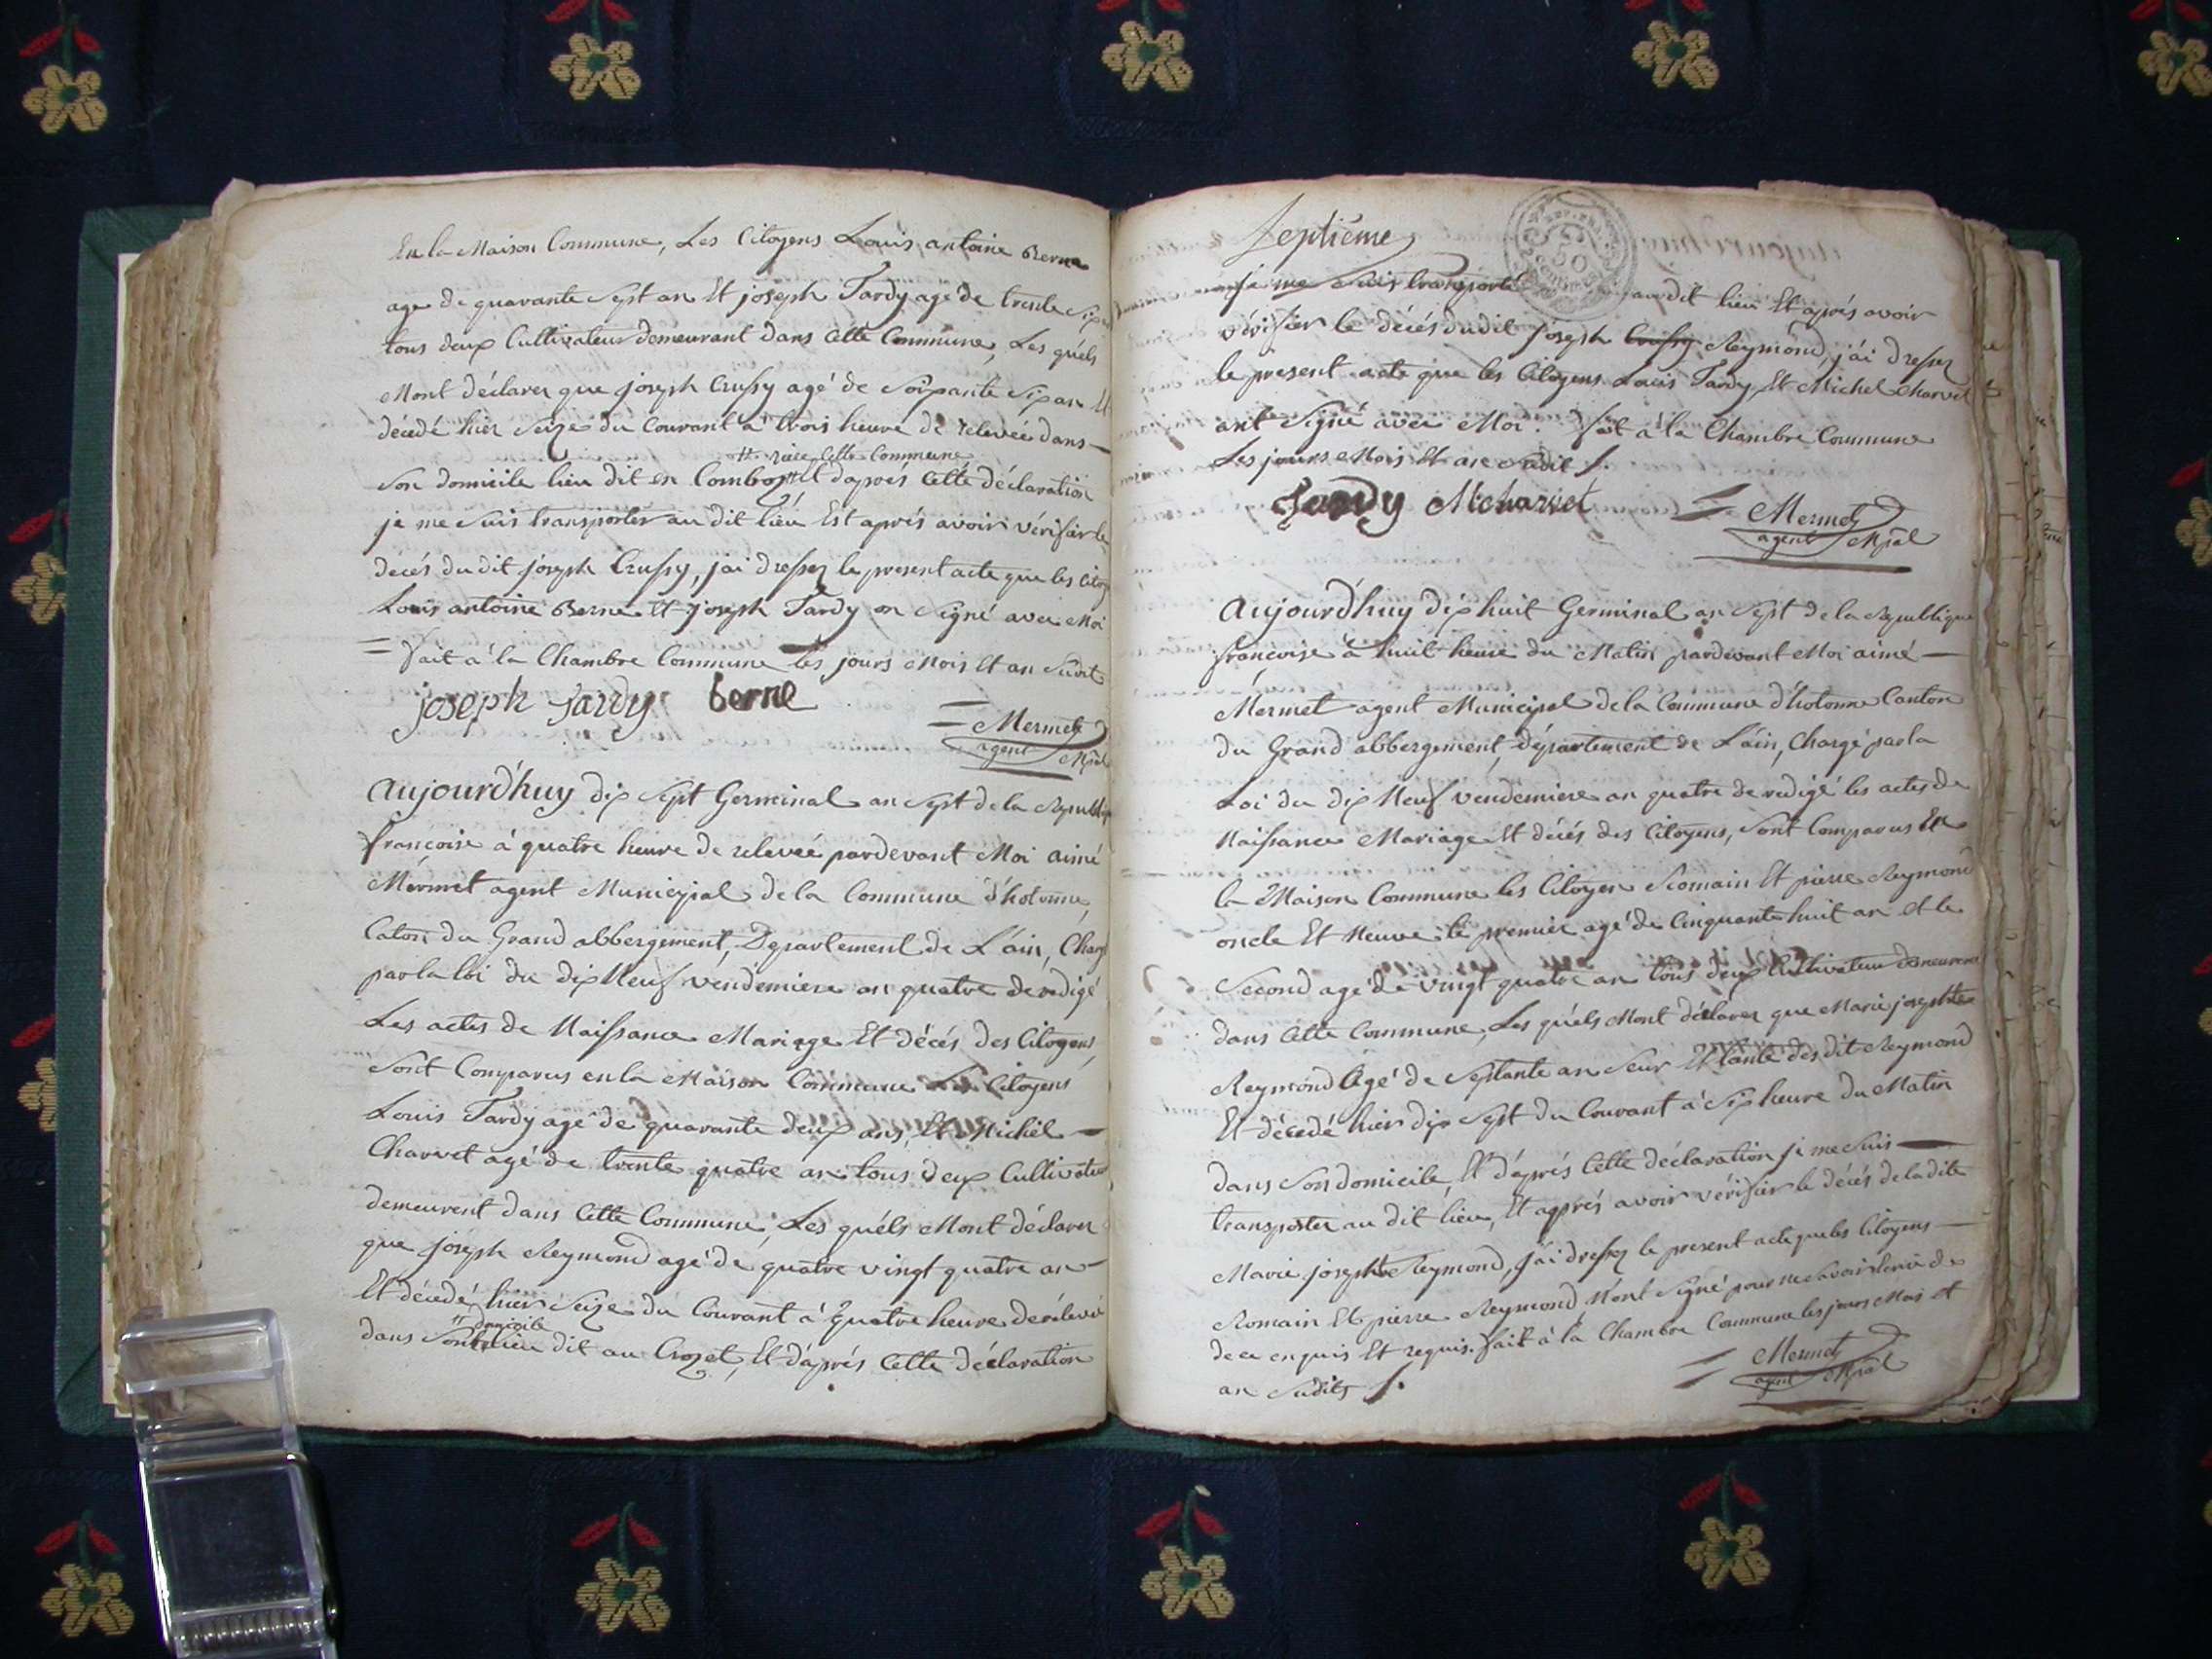 En la Maison Commune, Les Citoyens Louis antoine Berne
age de quarante Sept an Et joseph Tardy agé de trente Six
tous deux Cultivateur demeurant dans Cette Commune, Les quéls
Mont déclarer que joseph Crussy agé de Soixante Six an Et
décédé hier Seize du Courant à trois heure de relevée dans
# rière Cette Commune
Son domicile lieu dit en Comboz # Et daprès Cette déclaration
je me Suis transporter au dit lieu Est aprés avoir vérifier le
decés du dit joseph Crussy, jai dressez le present acte que les Citoy
Louis antoine Berne Et joseph Tardy on Signé avec Moi
= fait à la Chambre Commune les jours Mois Et an Sudit
joseph tardy Berne
= Mermet
agent Mpal
Aujourd'huy dix Sept Germinal an Sept de la Republiq
françoise à quatre heure de relevée pardevant Moi aimé
Mermet agent Municipial de la Commune d'hotonne,
Caton du Grand abbergement, Departement de L'ain, Charg
par la loi du dix Neuf vendemiere an quatre de redigé
Les actes de Naissance Mariage Et décés des Citoyens,
Sont Comparus en la Maison Commune Les Citoyens
Louis Tardy agé de quarante deux ans, Et Michel
Charvet agé de trente quatre an tous deux Cultivateu
demeurent dans Cette Commune, Les quéls Mont déclarer
que joseph Reymond agé de quatre vingt quatre an
Et décedé hier Seize du Courant à quatre heure de relevé
# domicile
dans Son # lieu dit au Crozet, Et d'aprés Cette déclaration
Septième
je me Suis transporté au dit lieu Et aprés avoir
vérifier le décés dudit joseph Crussy Reymond, j'ai dressez
le present acte que les Citoyens Louis Tardy Et Michel Charvet
ont Signé avec Moi. fait à la Chambre Commune
Les jours Mois Et an Sudit
Tardy M charvet
= Mermet
agent Mpal
Aujourd'huy dix huit Germinal an Sept de la Republique
francoise à huit heure du Matin pardevant Moi aimé
Mermet agent Municipal de la Commune d'hotonne Canton
du Grand abbergement, département de L'ain, Chargé par la
Loi du dix Neuf vendemiere an quatre de redigé les actes de
Naissance Mariage Et décés des Citoyens, Sont Comparus En
la Maison Commune les Citoyen Romain Et pierre Reymond
oncle Et Neuve le premier agé de Cinquante huit an et le
Second agé de vingt quatre an tous deux Cultivateur demeurent
dans Cette Commune, Les quéls Mont déclarer que Marie josephte
Reymond Agé de Septante an Seur Et tante des dit Reymond
Et décedé hier dix Sept du Courant à Six heure du Matin
dans Son domicile, Et d'aprés Cette déclaration je me Suis
transporter au dit lieu, Et apprés avoir vérifier le décés de la dite
Marie josephte Reymond, j'ai dressez le present acte que les Citoyens
Romain Et pierre Reymond N'ont Signé pour ne Savoir Ecrire de
de ce enquis Et requis. fait à la Chambre Commune les jours Mois et
an Sudits
= Mermet
agent Mpal